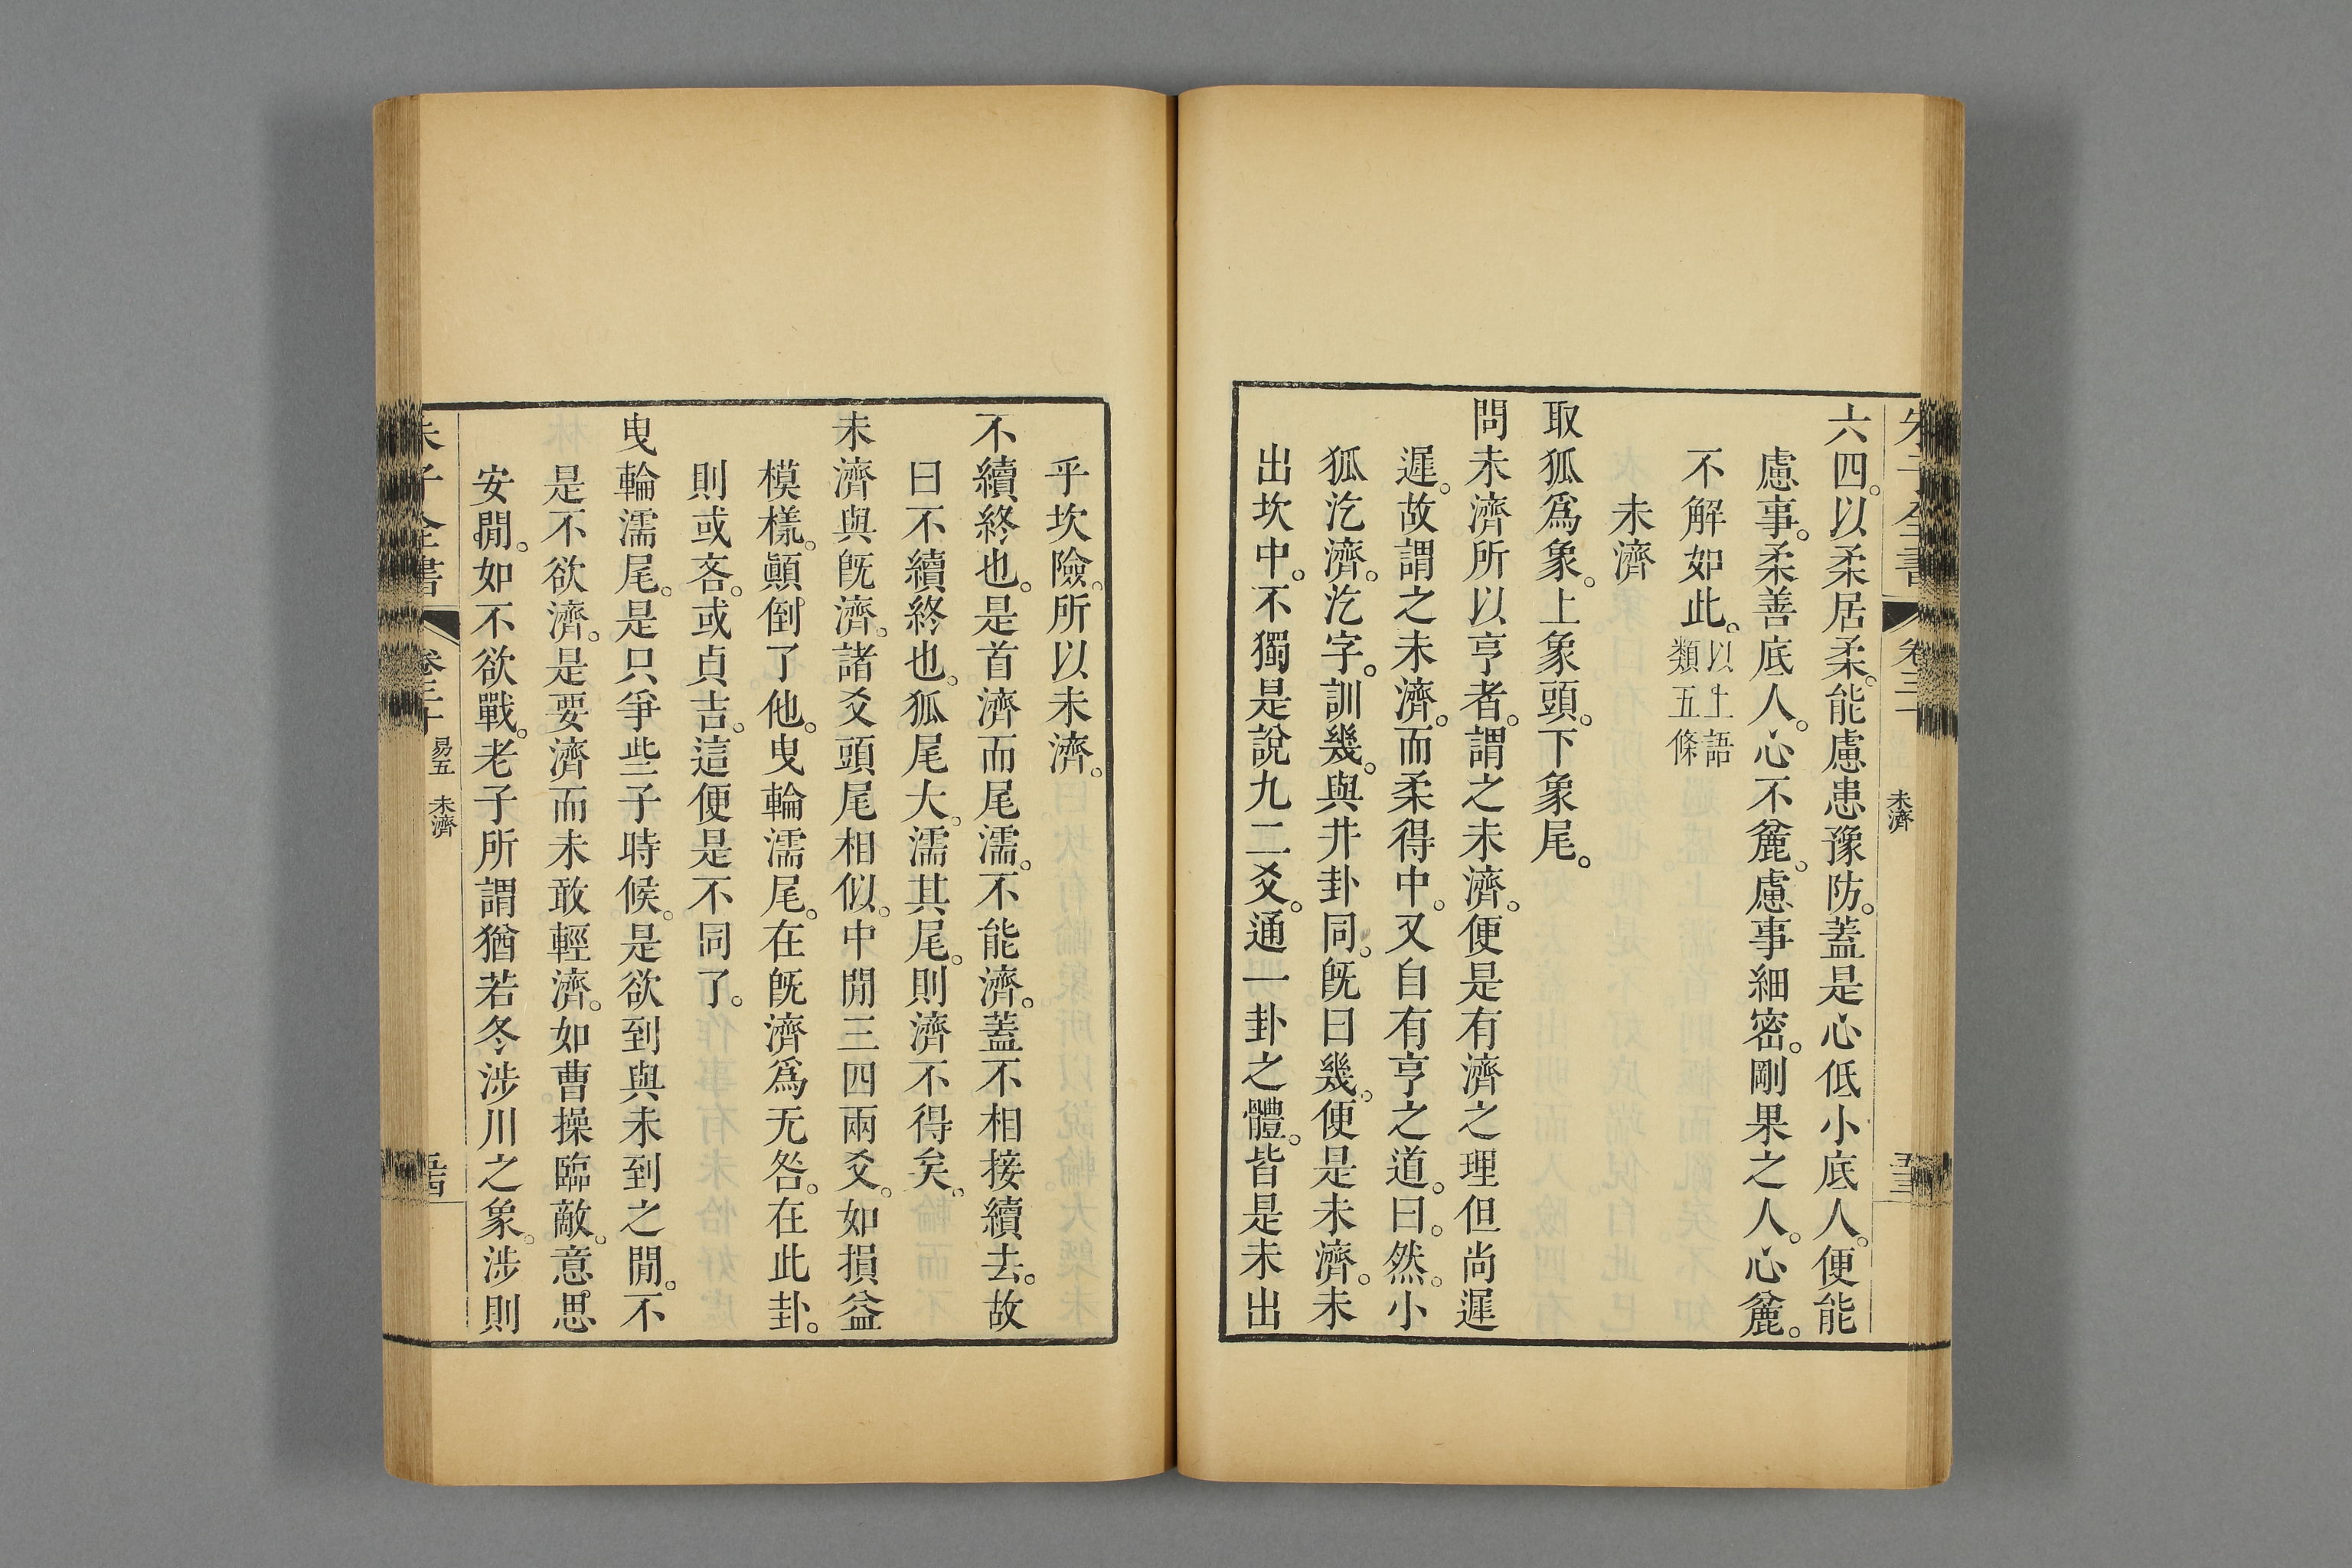 六四。以柔居柔。能慮患豫防。蓋是心低小底人。便能
慮事。柔善底人。心不麄。慮事細密。剛果之人。心麄。
不解如此。以上語
類五條
未濟
取狐爲象。上象頭。下象尾。
問未濟所以亨者。謂之未濟。便是有濟之理但尚遲
遲。故謂之未濟。而柔得中。又自有亨之道。曰。然。小
狐汔濟。汔字。訓幾。與井卦同。旣曰幾。便是未濟。未
出坎中。不獨是說九二爻。通一卦之體。皆是未出
未濟
乎坎險。所以未濟。
不續終也。是首濟而尾濡。不能濟。蓋不相接續去。故
曰不續終也。狐尾大。濡其尾。則濟不得矣。
未濟與旣濟。諸爻頭尾相似。中閒三四兩爻。如損益
模樣。顚倒了他。曳輪濡尾。在旣濟爲无咎。在此卦。
則或吝。或貞吉。這便是不同了。
曳輪濡尾。是只爭些子時候。是欲到與未到之閒。不
是不欲濟。是要濟而未敢輕濟。如曹操臨敵。意思
安閒。如不欲戰。老子所謂猶若冬涉川之象。涉則
朱子全書 易五 未濟